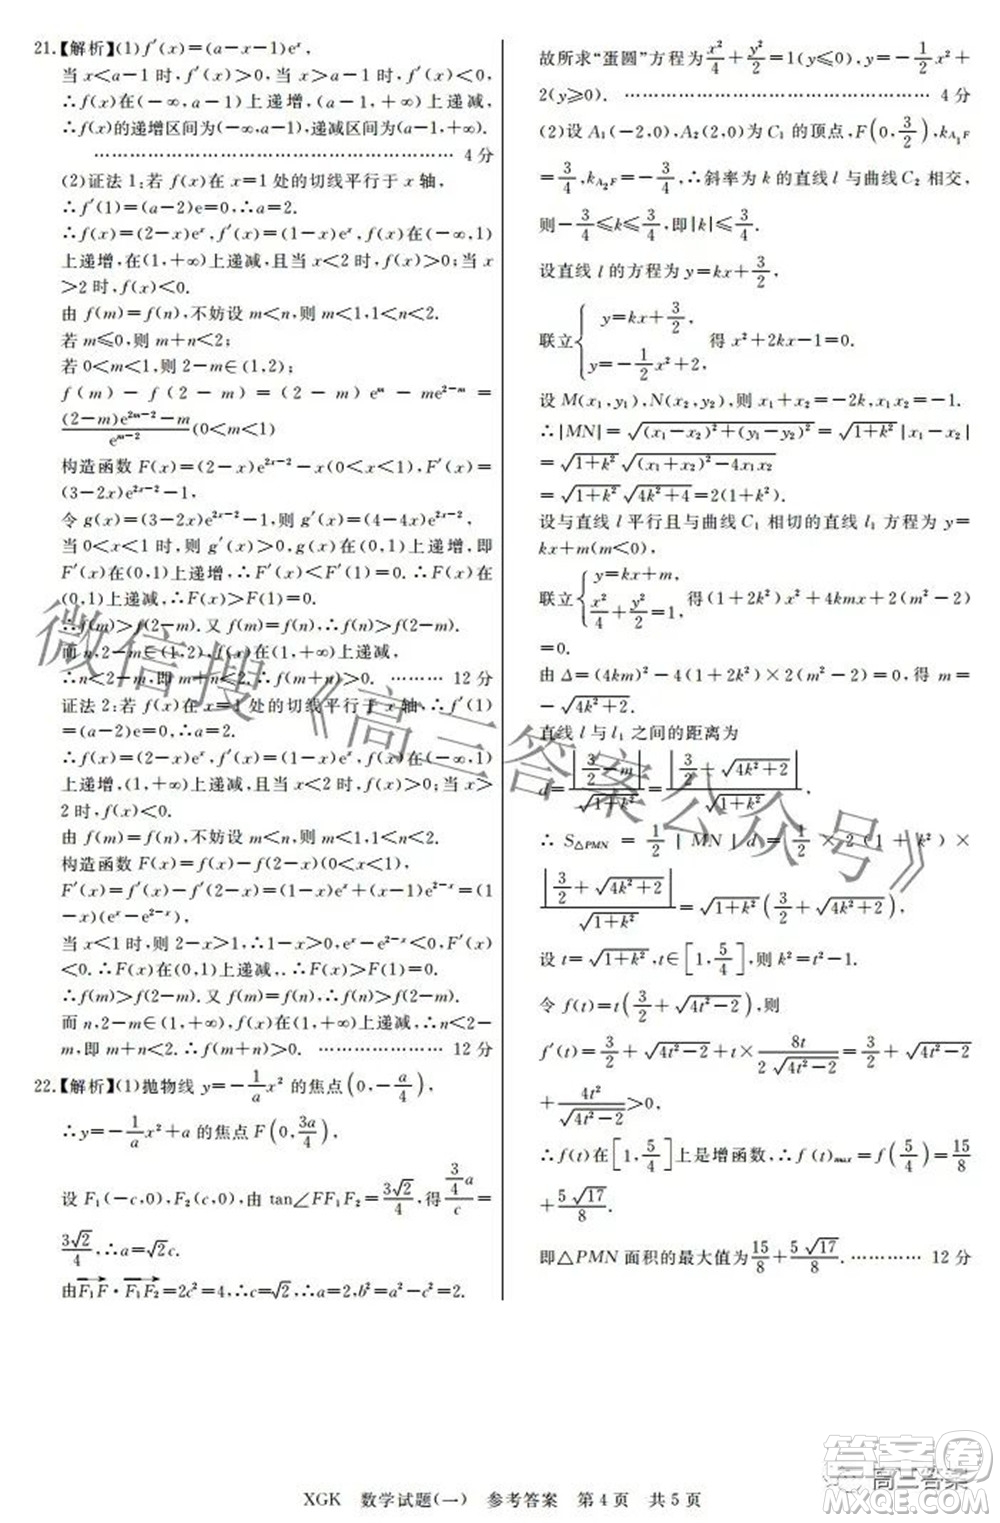 21.【解析】(1)f′(x)=(a-x-1)eˣ,
当 x<a-1 时,f′(x)>0,当 x>a-1 时,f′(x)<0,
∴f(x)在(-∞,a-1)上递增,(a-1,+∞)上递减,
∴f(x)的递增区间为(-∞,a-1),递减区间为(a-1,+∞).
…………………………………………………… 4 分
(2)证法 1:若 f(x)在 x=1 处的切线平行于 x 轴,
∴f′(1)=(a-2)e=0,∴a=2.
∴f(x)=(2-x)eˣ,f′(x)=(1-x)eˣ,f(x)在(-∞,1)
上递增,在(1,+∞)上递减,当 x<2 时,f(x)>0;当 x
>2 时,f(x)<0.
由 f(m)=f(n),不妨设 m<n,则 m<1,1<n<2.
若 m≤0,则 m+n<2;
若 0<m<1,则 2-m∈(1,2);
f(m)-f(2-m)=(2-m)eᵐ-me²⁻ᵐ=
((2-m)e²ᵐ⁻²-m)/eᵐ⁻²(0<m<1)
构造函数 F(x)=(2-x)e²ˣ⁻²-x(0<x<1),F′(x)=
(3-2x)e²ˣ⁻²-1,
令 g(x)=(3-2x)e²ˣ⁻²-1,则 g′(x)=(4-4x)e²ˣ⁻².
当 0<x<1 时,则 g′(x)>0,g(x)在(0,1)上递增,即
F′(x)在(0,1)上递增,∴F′(x)<F′(1)=0.∴F(x)在
(0,1)上递减,∴F(x)>F(1)=0.
∴f(m)>f(2-m).又 f(m)=f(n),∴f(n)>f(2-m).
而 n,2-m∈(1,+∞),f(x)在(1,+∞)上递减,
∴n<2-m,即 m+n<2.∴f(m+n)>0. …… 12 分
证法 2:若 f(x)在 x=1 处的切线平行于 x 轴,∴f′(1)
=(a-2)e=0,∴a=2.
∴f(x)=(2-x)eˣ,f′(x)=(1-x)eˣ,f(x)在(-∞,1)
上递增,在(1,+∞)上递减,当 x<2 时,f(x)>0;当 x>
2 时,f(x)<0.
由 f(m)=f(n),不妨设 m<n,则 m<1,1<n<2.
构造函数 F(x)=f(x)-f(2-x)(x<1),
F′(x)=f′(x)+f′(2-x)=(1-x)eˣ+(x-1)e²⁻ˣ=(1
-x)(eˣ-e²⁻ˣ)(x<1),
当 x<1 时,则 2-x>1,∴1-x>0,eˣ-e²⁻ˣ<0,F′(x)
<0.∴F(x)在(0,1)上递减,∴F(x)>F(1)=0.
∴f(m)>f(2-m).又 f(m)=f(n),∴f(n)>f(2-m).
而 n,2-m∈(1,+∞),f(x)在(1,+∞)上递减,∴n<2-
m,即 m+n<2,∴f(m+n)>0. ………………… 12 分
22.【解析】(1)抛物线 y=-(1/a)x² 的焦点(0,-a/4),
∴y=-(1/a)x²+a 的焦点 F(0,3a/4),
设 F₁(-c,0),F₂(c,0),由 tan∠FF₁F₂=3√2/4,得(3/4)a/c=
3√2/4,∴a=√2c.
由F₁F→·F₁F₂→=2c²=4,∴c=√2,∴a=2,b²=a²-c²=2.
故所求“蛋圆”方程为x²/4+y²/2=1(y≤0),y=-(1/2)x²+
2(y≥0). …………………………………………… 4 分
(2)设 A₁(-2,0),A₂(2,0)为 C₁的顶点,F(0,3/2),k_{A₁F}
=3/4,k_{A₂F}=-3/4,∴斜率为 k 的直线 l 与曲线C₂ 相交,
则-3/4≤k≤3/4,即|k|≤3/4.
设直线 l 的方程为 y=kx+3/2,
联立{y=kx+3/2, y=-(1/2)x²+2, 得 x²+2kx-1=0.
设 M(x₁,y₁),N(x₂,y₂),则 x₁+x₂=-2k,x₁x₂=-1.
∴|MN|=√((x₁-x₂)²+(y₁-y₂)²)=√(1+k²)|x₁-x₂|=
√(1+k²)√((x₁+x₂)²-4x₁x₂)
=√(1+k²)√(4k²+4)=2(1+k²).
设与直线 l 平行且与曲线C₁ 相切的直线 l₁ 方程为 y=
kx+m(m<0),
联立{y=kx+m, x²/4+y²/2=1, 得(1+2k²)x²+4kmx+2(m²-2)
=0.
由 Δ=(4km)²-4×2(1+2k²)(m²-2)=0,得 m=
-√(4k²+2).
直线 l 与 l₁ 之间的距离为
d=|3/2-m|/√(1+k²)=|3/2+√(4k²+2)|/√(1+k²).
∴S△PMN=1/2|MN|d=1/2×2(1+k²)×
|3/2+√(4k²+2)|/√(1+k²)=√(1+k²)(3/2+√(4k²+2)),
设 t=√(1+k²),t∈[1,5/4],则k²=t²-1,
令 f(t)=t(3/2+√(4t²-2)),则
f′(t)=3/2+√(4t²-2)+t×8t/(2√(4t²-2))=3/2+√(4t²-2)
+4t²/√(4t²-2)>0,
∴f(t)在[1,5/4]上是增函数,∴f(t)max=f(5/4)=15/8
+5√17/8.
即△PMN 面积的最大值为15/8+5√17/8. ………… 12 分
微信搜《高三答案公众号》
XGK 数学试题(一) 参考答案 第 4 页 共 5 页
高三答案
答案圈
MXQE.COM